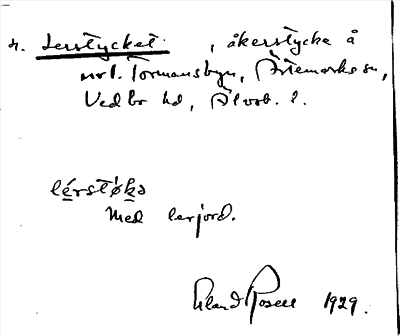 n. Lerstycket, åkerstycke å
nr 1. Tormansbyn, Ärtemarks sn,
Vedbo hd, Älvsb. l.
lérstøkə
Med lerjord.
Rosell 1929.